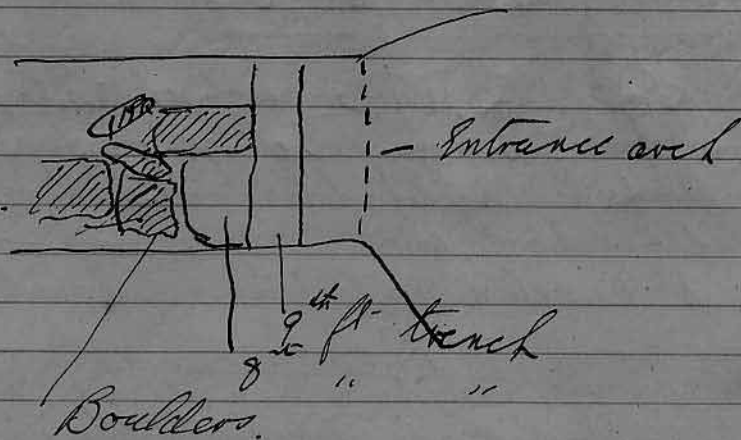 - Entrance arch
9th ft trench
8th " "
Boulders.